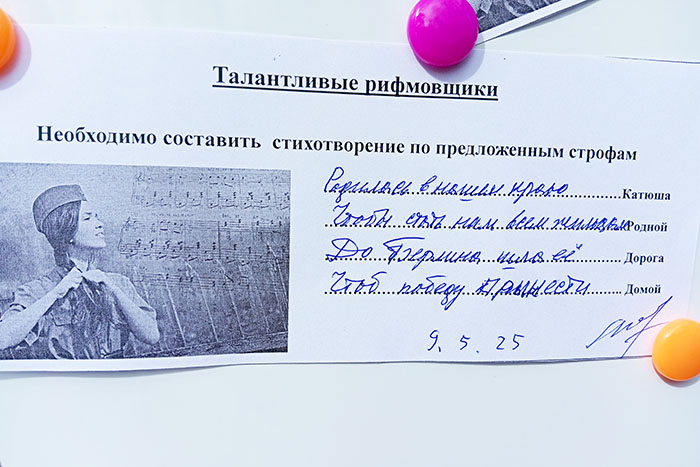 Талантливые рифмовщики
Необходимо составить стихотворение по предложенным строфам
Родилась в нашем краю Катюша
Чтобы стать нам всем Родной
До Берлина шла её Дорога
Чтоб победу принести Домой
9.5.25